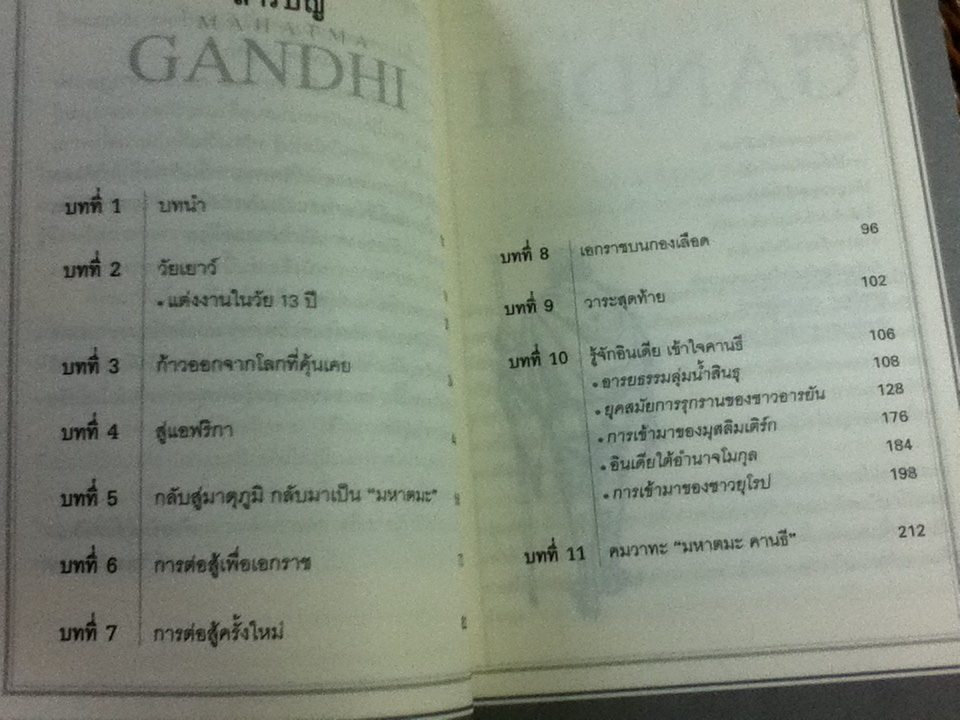 สารบัญ
MAHATMA
GANDHI
บทที่ 1 บทนำ
บทที่ 2 วัยเยาว์
• แต่งงานในวัย 13 ปี
บทที่ 3 ก้าวออกจากโลกที่คุ้นเคย
บทที่ 4 สู่แอฟริกา
บทที่ 5 กลับสู่มาตุภูมิ กลับมาเป็น “มหาตมะ”
บทที่ 6 การต่อสู้เพื่อเอกราช
บทที่ 7 การต่อสู้ครั้งใหม่
บทที่ 8 เอกราชบนกองเลือด 96
บทที่ 9 วาระสุดท้าย 102
บทที่ 10 รู้จักอินเดีย เข้าใจคานธี 106
• อารยธรรมลุ่มน้ำสินธุ 108
• ยุคสมัยการรุกรานของชาวอารยัน 128
• การเข้ามาของมุสลิมเติร์ก 176
• อินเดียใต้อำนาจโมกุล 184
• การเข้ามาของชาวยุโรป 198
บทที่ 11 คมวาทะ “มหาตมะ คานธี” 212